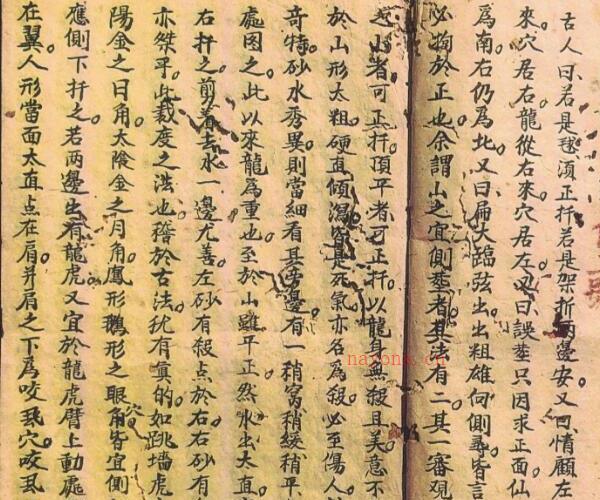 古人曰若是毬須正扦若是架折兩邊安又曰情顧左
來穴居右龍從右來穴居左又曰誤葬只因求正面仙
為南右仍為北又曰扁大臨弦出出粗雄向側尋皆言
必拘於正也余謂山之宜側葬者其法有二其一審現
之山者可正扦頂平者可正扦以龍身無殺且美意不
於山形太粗硬直傾瀉皆是死氣亦名為殺必至傷人
奇特砂水秀異則當細看其旁邊有一稍窩稍緩稍平
處図之此以來龍為重也至於山雖平正然水出太直
右扦之剪着去水一邊尤善左砂有殺点於右右砂有
亦桀乎此裁度之法也稽於古法犹有真的如跳墻虎
陽金之日角太陰金之月角鳳形鵝形之眼角皆宜側
應側下扦之若兩邊出有龍虎又宜於龍虎臂上動處
在翼人形當面太直点在肩井肩之下為咬乳穴咬乳
nayona.cn